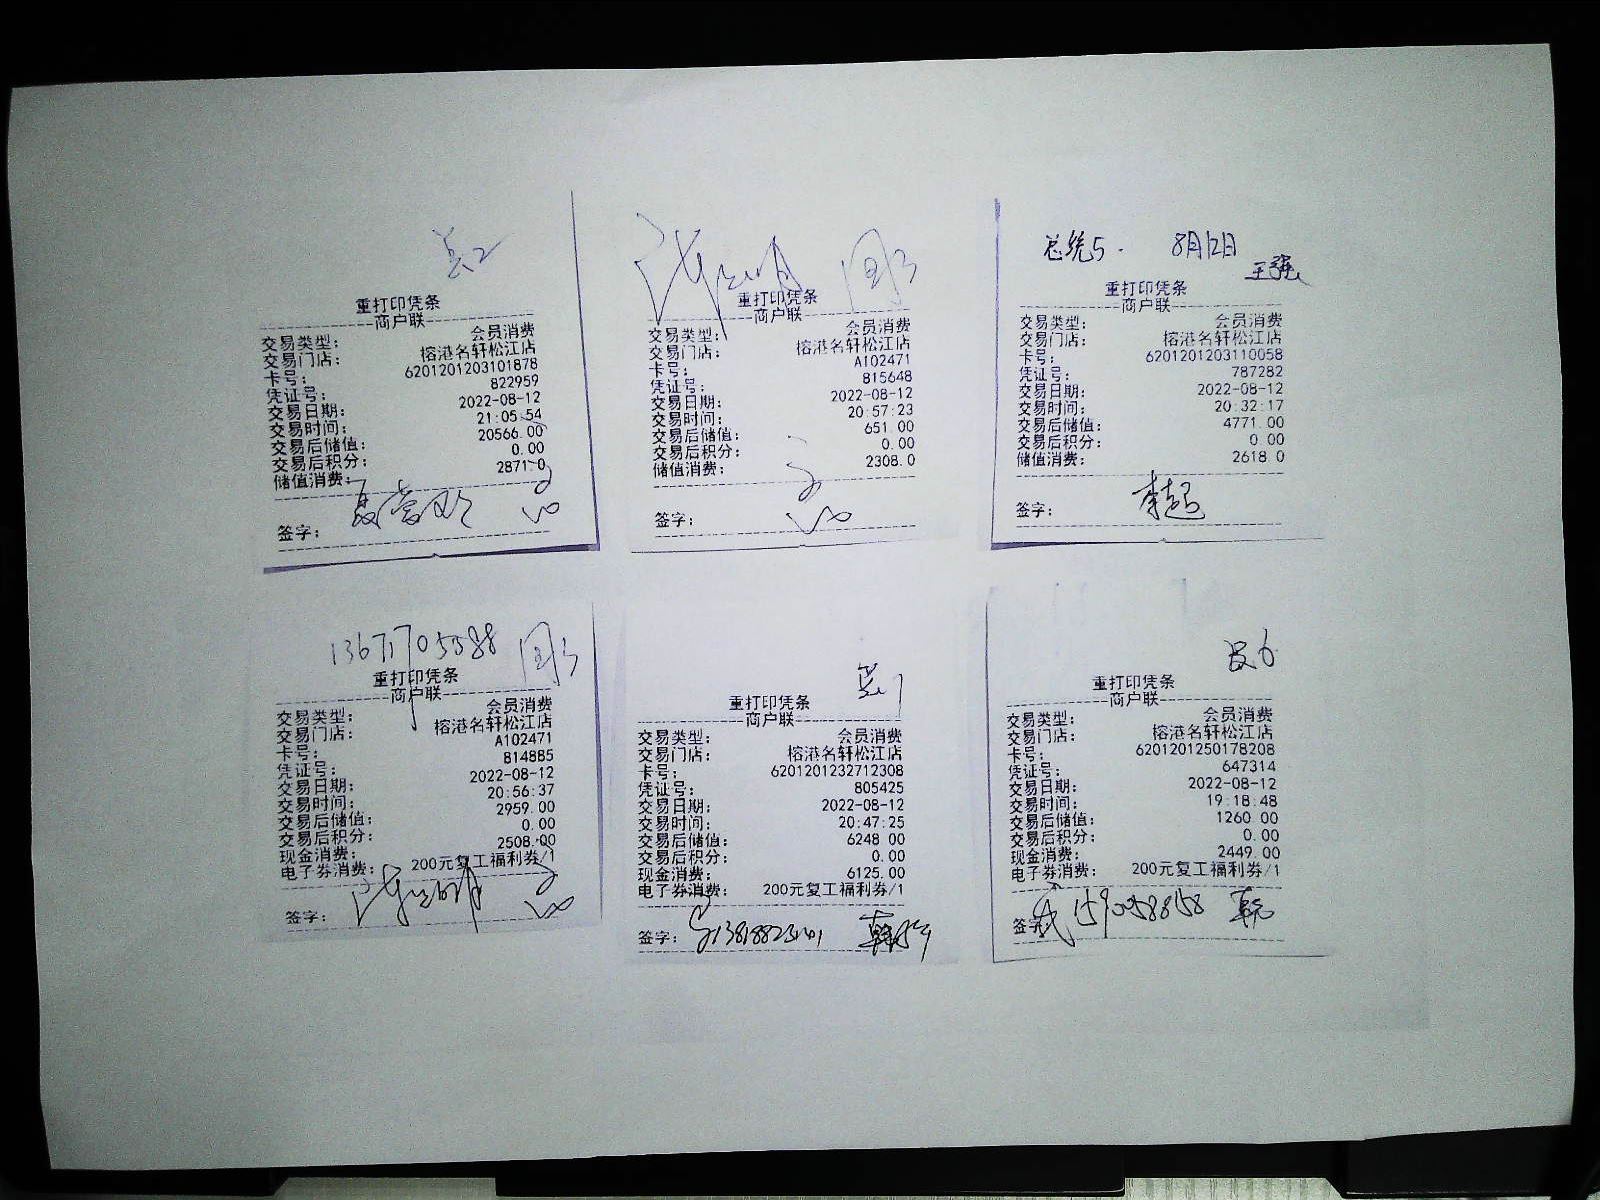 重打印凭条
商户联
交易类型： 会员消费
交易门店： 榕港名轩松江店
卡号： 6201201203101878
凭证号： 822959
交易日期： 2022-08-12
交易时间： 21:05:54
交易后储值： 20566.00
交易后积分： 0.00
储值消费： 2871.0
签字：
重打印凭条
商户联
交易类型： 会员消费
交易门店： 榕港名轩松江店
卡号： A102471
凭证号： 815648
交易日期： 2022-08-12
交易时间： 20:57:23
交易后储值： 651.00
交易后积分： 0.00
储值消费： 2308.0
签字：
总统5. 8月12日
王强
重打印凭条
商户联
交易类型： 会员消费
交易门店： 榕港名轩松江店
卡号： 6201201203110058
凭证号： 787282
交易日期： 2022-08-12
交易时间： 20:32:17
交易后储值： 4771.00
交易后积分： 0.00
储值消费： 2618.0
签字： 李超
13671705588
重打印凭条
商户联
交易类型： 会员消费
交易门店： 榕港名轩松江店
卡号： A102471
凭证号： 814885
交易日期： 2022-08-12
交易时间： 20:56:37
交易后储值： 2959.00
交易后积分： 0.00
现金消费： 2508.00
电子券消费： 200元复工福利券/1
签字：
重打印凭条
商户联
交易类型： 会员消费
交易门店： 榕港名轩松江店
卡号： 6201201232712308
凭证号： 805425
交易日期： 2022-08-12
交易时间： 20:47:25
交易后储值： 6248.00
交易后积分： 0.00
现金消费： 6125.00
电子券消费： 200元复工福利券/1
签字：
重打印凭条
商户联
交易类型： 会员消费
交易门店： 榕港名轩松江店
卡号： 6201201250178208
凭证号： 647314
交易日期： 2022-08-12
交易时间： 19:18:48
交易后储值： 1260.00
交易后积分： 0.00
现金消费： 2449.00
电子券消费： 200元复工福利券/1
签字：